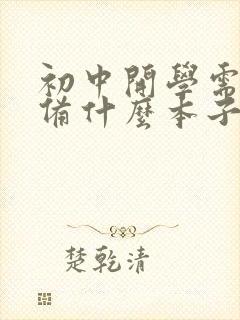 初中開學需
備什麼本子
楚乾清